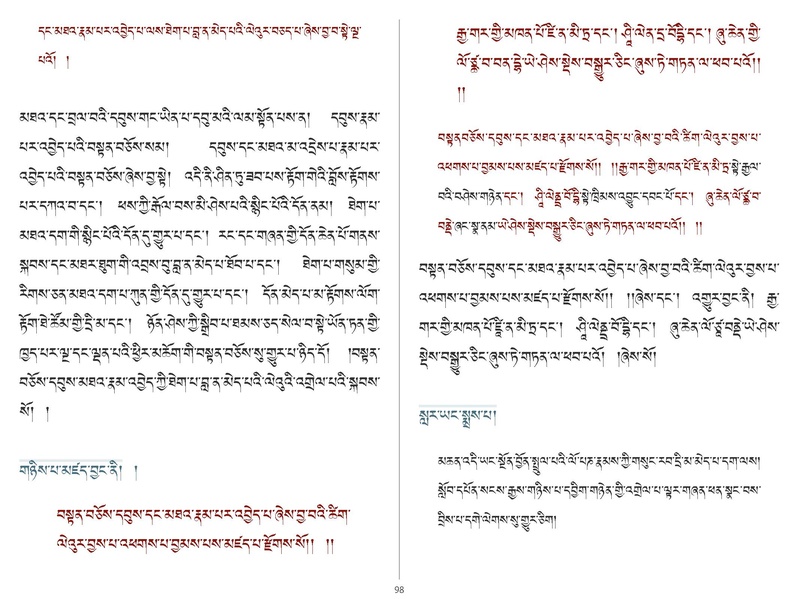 དང་མཐའ་རྣམ་པར་འབྱེད་པ་ལས་ཐེག་པ་བླ་ན་མེད་པའི་ལེའུར་བཅད་པ་ཞེས་བྱ་བ་སྟེ་ལྔ་
པའོ། །
མཐའ་དང་བྲལ་བའི་དབུས་གང་ཡིན་པ་དབུ་མའི་ལམ་སྟོན་པས་ན། དབུས་རྣམ་
པར་འབྱེད་པའི་བསྟན་བཅོས་སམ། དབུས་དང་མཐའ་མ་འདྲེས་པ་རྣམ་པར་
འབྱེད་པའི་བསྟན་བཅོས་ཞེས་བྱ་སྟེ། འདི་ནི་ཤིན་ཏུ་ཟབ་པས་རྟོག་གེའི་བློས་རྟོགས་
པར་དཀའ་བ་དང་། ཕས་ཀྱི་རྒོལ་བས་མི་ཤེས་པའི་སྙིང་པོའི་དོན་ནམ། ཐེག་པ་
མཐའ་དག་གི་སྙིང་པོའི་དོན་དུ་གྱུར་པ་དང་། རང་དང་གཞན་གྱི་དོན་ཆེན་པོ་གནས་
སྐབས་དང་མཐར་ཐུག་གི་འབྲས་བུ་བླ་ན་མེད་པ་ཐོབ་པ་དང་། ཐེག་པ་གསུམ་གྱི་
རིགས་ཅན་མཐའ་དག་པ་ཀུན་གྱི་དོན་དུ་གྱུར་པ་དང་། དོན་མེད་པ་མ་རྟོགས་ལོག་
རྟོག་ཐེ་ཚོམ་གྱི་དྲི་མ་དང་། ཉོན་ཤེས་ཀྱི་སྒྲིབ་པ་ཐམས་ཅད་སེལ་བ་སྟེ་ཡོན་ཏན་གྱི་
ཁྱད་པར་ལྔ་དང་ལྡན་པའི་ཕྱིར་མཆོག་གི་བསྟན་བཅོས་སུ་གྱུར་པ་ཉིད་དོ། །བསྟན་
བཅོས་དབུས་མཐའ་རྣམ་འབྱེད་ཀྱི་ཐེག་པ་བླ་ན་མེད་པའི་ལེའུའི་འགྲེལ་པའི་སྐབས་
སོ། །
གཉིས་པ་མཛད་བྱང་ནི། །
བསྟན་བཅོས་དབུས་དང་མཐའ་རྣམ་པར་འབྱེད་པ་ཞེས་བྱ་བའི་ཚིག་
ལེའུར་བྱས་པ་འཕགས་པ་བྱམས་པས་མཛད་པ་རྫོགས་སོ།། །།
རྒྱ་གར་གྱི་མཁན་པོ་ཛི་ན་མི་ཏྲ་དང་། ཤཱི་ལེན་དྲ་བོ་དྷི་དང་། ཞུ་ཆེན་གྱི་
ལོ་ཙྪ་བ་བན་དྷེ་ཡེ་ཤེས་སྡེས་བསྒྱུར་ཅིང་ཞུས་ཏེ་གཏན་ལ་ཕབ་པའོ།།
།།
བསྟན་བཅོས་དབུས་དང་མཐའ་རྣམ་པར་འབྱེད་པ་ཞེས་བྱ་བའི་ཚིག་ལེའུར་བྱས་པ་
འཕགས་པ་བྱམས་པས་མཛད་པ་རྫོགས་སོ།། །།རྒྱ་གར་གྱི་མཁན་པོ་ཛི་ན་མི་ཏྲ་སྟེ་རྒྱལ་
བའི་བཤེས་གཉེན་དང་། ཤཱི་ལེནྡྲ་བོ་དྷི་སྟེ་ཁྲིམས་འབྱུང་དབང་པོ་དང་། ཞུ་ཆེན་ལོ་ཙྪ་བ་
བནྡེ་ཞང་སྣ་ནམ་ཡེ་ཤེས་སྡེས་བསྒྱུར་ཅིང་ཞུས་ཏེ་གཏན་ལ་ཕབ་པའོ།། །།
བསྟན་བཅོས་དབུས་དང་མཐའ་རྣམ་པར་འབྱེད་པ་ཞེས་བྱ་བའི་ཚིག་ལེའུར་བྱས་པ་
འཕགས་པ་བྱམས་པས་མཛད་པ་རྫོགས་སོ།། །།ཞེས་དང་། འགྱུར་བྱང་ནི། རྒྱ་
གར་གྱི་མཁན་པོ་ཛི་ན་མི་ཏྲ་དང་། ཤཱི་ལེནྡྲ་བོ་དྷི་དང་། ཞུ་ཆེན་ལོ་ཙྪ་བནྡེ་ཡེ་ཤེས་
སྡེས་བསྒྱུར་ཅིང་ཞུས་ཏེ་གཏན་ལ་ཕབ་པའོ། །ཞེས་སོ།
སླར་ཡང་སྨྲས་པ།
མཆན་འདི་ཡང་སྔོན་བྱོན་སྤྲུལ་པའི་ལོ་པཎ་རྣམས་ཀྱི་གསུང་རབ་དྲི་མ་མེད་པ་དག་ལས།
སློབ་དཔོན་སངས་རྒྱས་གཉིས་པ་དབྱིག་གཉེན་གྱི་འགྲེལ་པ་ལྟར་གཞན་ཕན་སྣང་བས་
བྲིས་པ་དགེ་ལེགས་སུ་གྱུར་ཅིག།
98